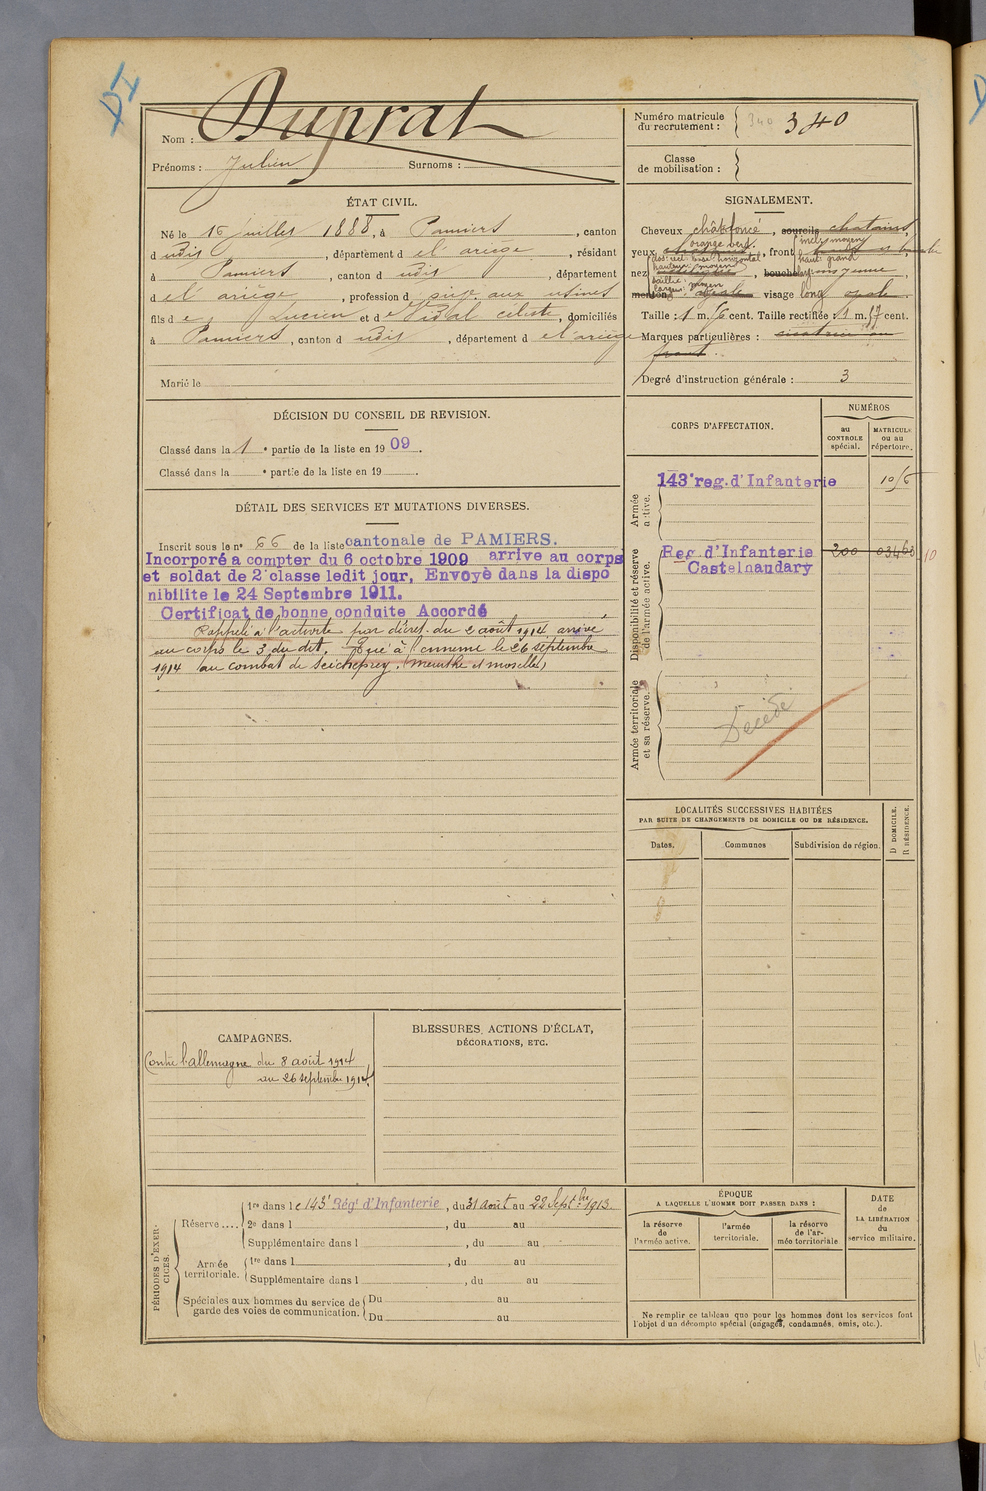 DI
Nom : Duprat
Prénoms : Julien Surnoms :
Numéro matricule du recrutement : 340 340
Classe de mobilisation :
ÉTAT CIVIL.
Né le 16 juillet 1888, à Pamiers, canton
dudit, département de l'ariège, résidant
à Pamiers, canton dudit, département
de l'ariège, profession d aux usines
fils de Lucien et de Vidal céleste, domiciliés
à Pamiers, canton dudit, département de l'ariège
Marié le
SIGNALEMENT.
Cheveux chât foncé, sourcils chatains,
orange verd. incl: moyen
yeux, front
dos: rect. base: horizontal haut: grand
hauteur: moyen
nez, bouche moyenne,
saillie: moyen
largeur: moyen
menton: ovale visage long ovale.
Taille : 1 m. cent. Taille rectifiée : 1 m. cent.
Marques particulières : cicatrice au
front.
Degré d'instruction générale : 3
DÉCISION DU CONSEIL DE REVISION.
Classé dans la 1e partie de la liste en 1909.
Classé dans la e partie de la liste en 19 .
CORPS D'AFFECTATION.
NUMÉROS
au CONTROLE spécial.
MATRICULE ou au répertoire.
Armée active.
143e reg. d'Infanterie
Disponibilité et réserve de l'armée active.
Reg d'Infanterie 200 03460 10
Castelnaudary
Armée territoriale et sa réserve.
Décédé
DÉTAIL DES SERVICES ET MUTATIONS DIVERSES.
Inscrit sous le no 66 de la liste cantonale de PAMIERS.
Incorporé a compter du 6 octobre 1909 arrive au corps
et soldat de 2e classe ledit jour, Envoyé dans la dispo
nibilite le 24 Septembre 1911.
Certificat de bonne conduite Accordé
Rappelé à l'activité par décret du 2 août 1914 arrivé
au corps le 3 du dit. Tué à l'ennemi le 26 septembre
1914 au combat de Seicheprey. (meurthe et moselle)
LOCALITÉS SUCCESSIVES HABITÉES
PAR SUITE DE CHANGEMENTS DE DOMICILE OU DE RÉSIDENCE.
Dates. Communes Subdivision de région. D DOMICILE. R RÉSIDENCE.
CAMPAGNES.
Contre l'allemagne du 8 août 1914
au 26 septembre 1914
BLESSURES, ACTIONS D'ÉCLAT,
DÉCORATIONS, ETC.
PÉRIODES D'EXERCICES.
Réserve....
1re dans le 143e Rég' d'Infanterie, du 31 août au 22 Septbre 1913.
2e dans l , du au
Supplémentaire dans l , du au
Armée territoriale.
1re dans l , du au
Supplémentaire dans l , du au
Spéciales aux hommes du service de
garde des voies de communication.
Du au
Du au
ÉPOQUE
A LAQUELLE L'HOMME DOIT PASSER DANS :
la réserve de l'armée active.
l'armée territoriale.
la réserve de l'armée territoriale
DATE de LA LIBÉRATION du service militaire.
Ne remplir ce tableau que pour les hommes dont les services font
l'objet d'un décompte spécial (engagés, condamnés, omis, etc.).